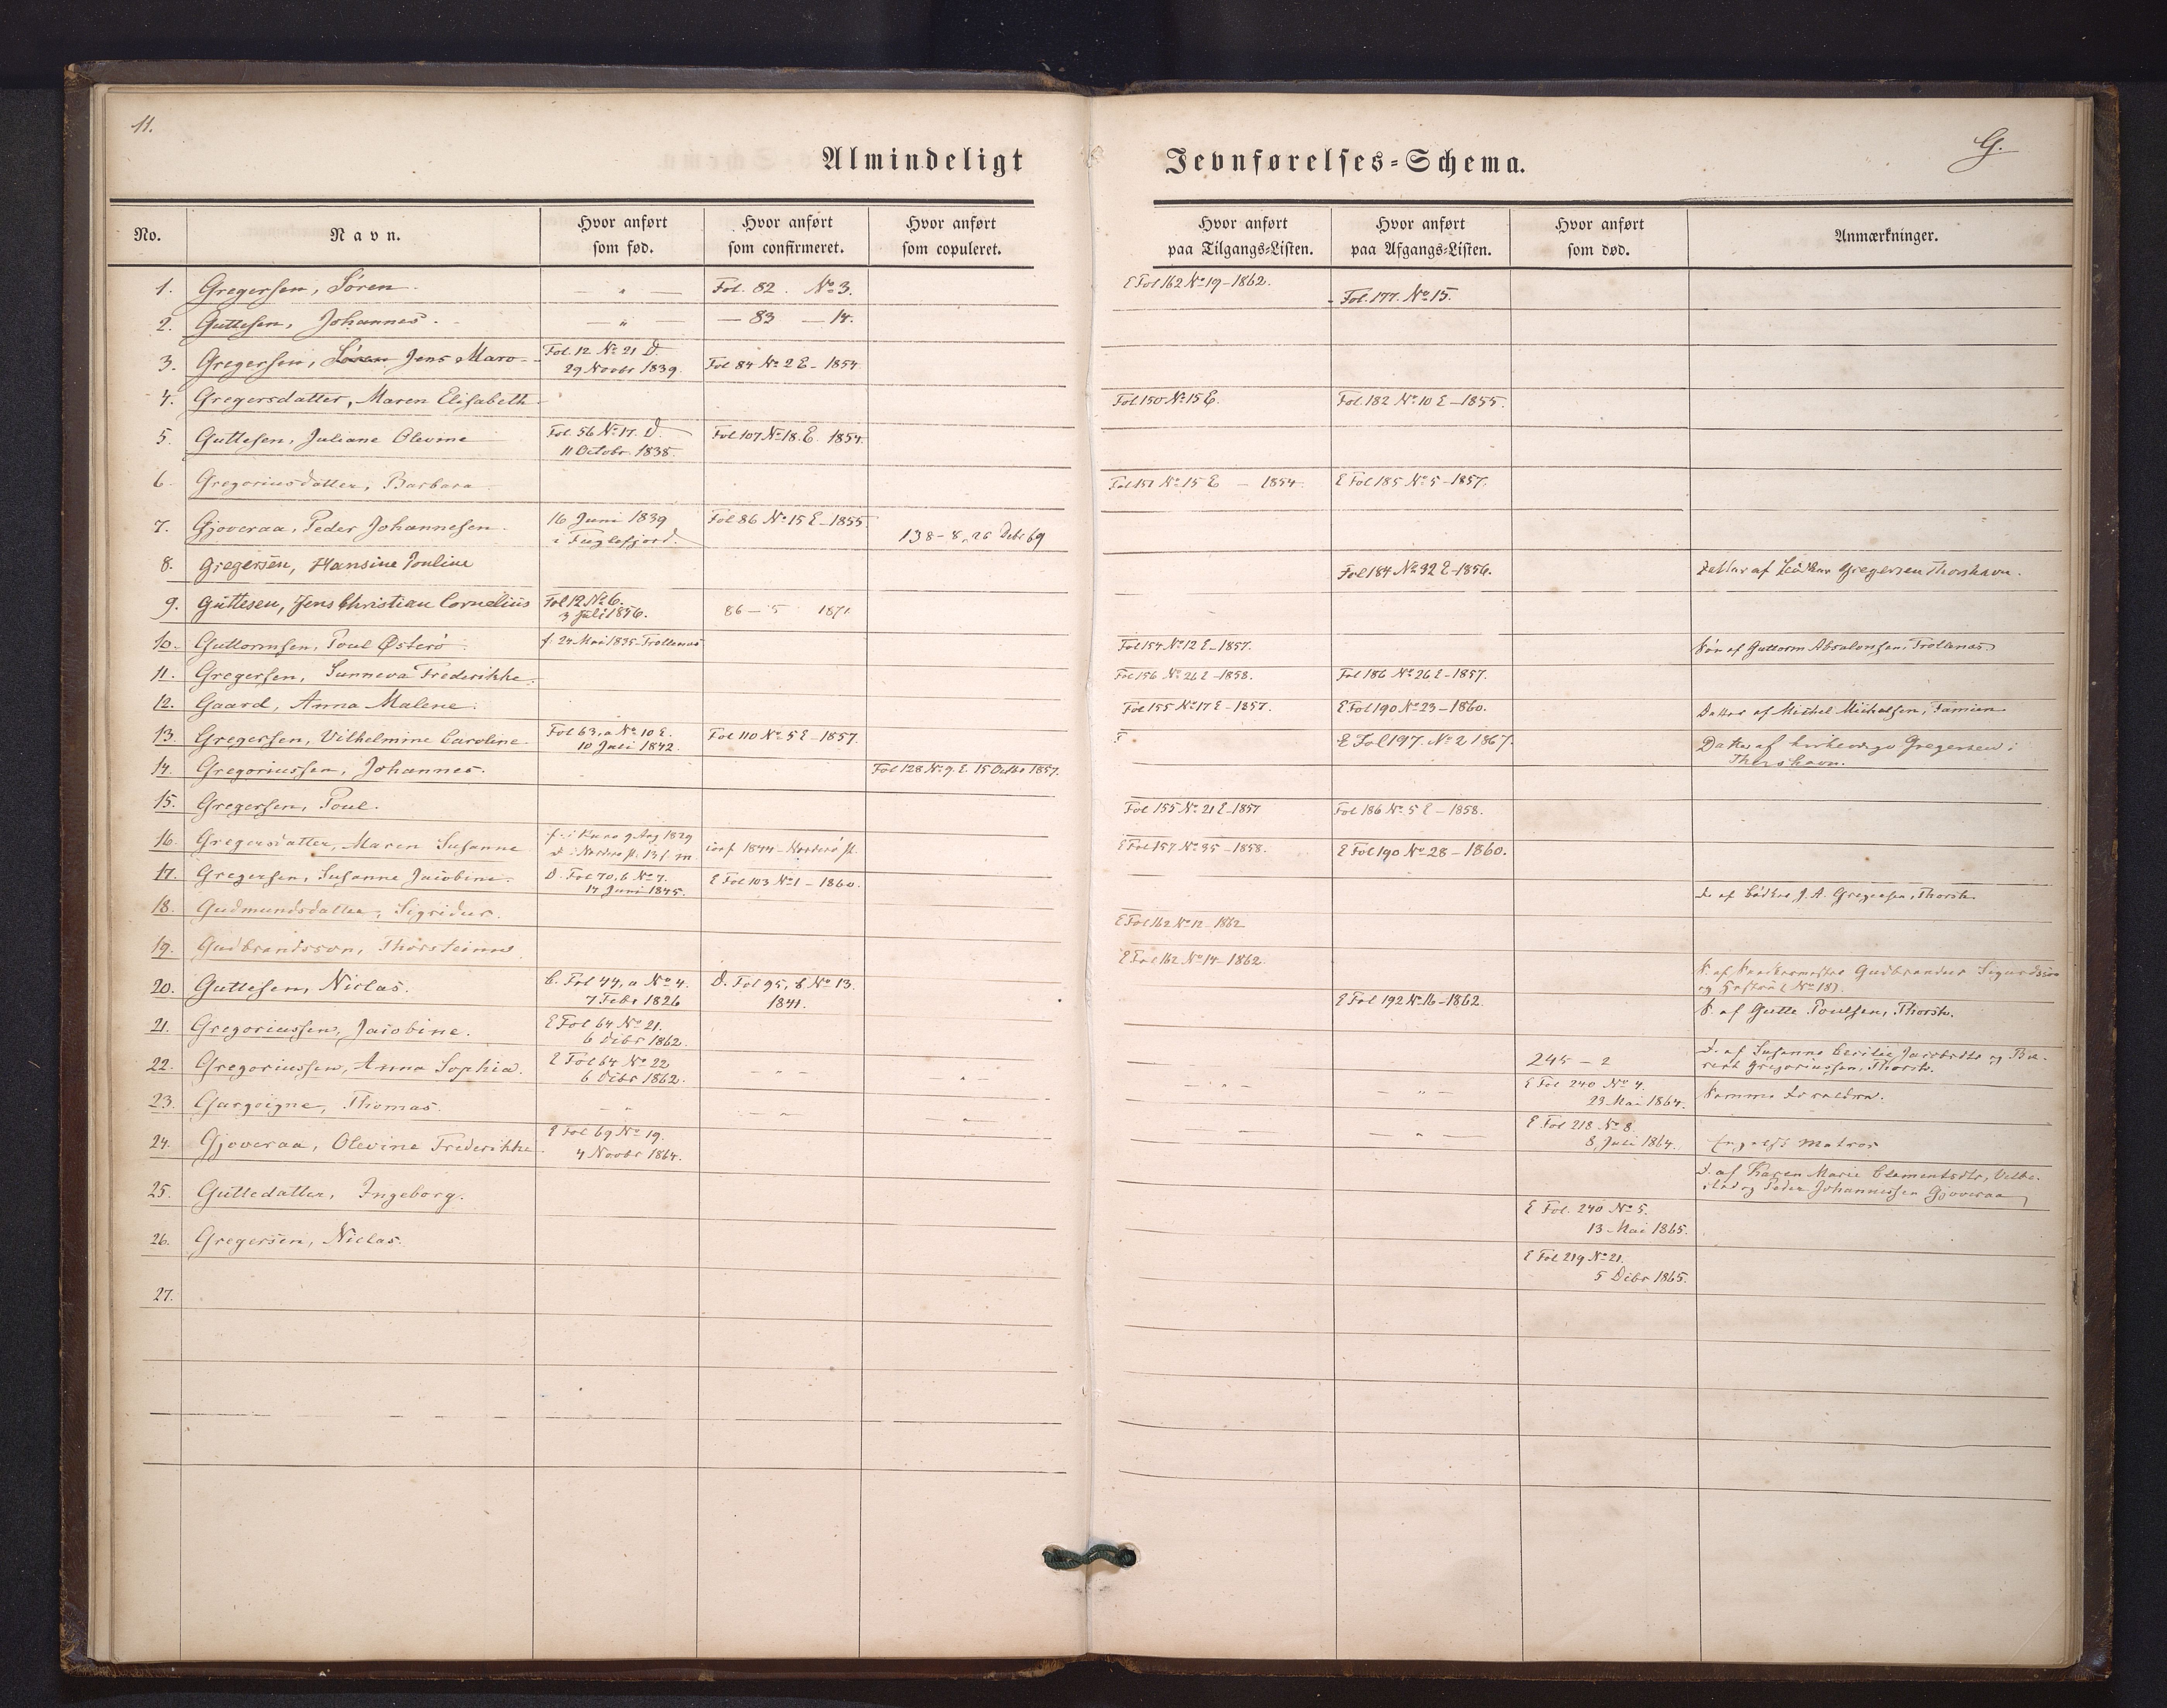 11.
G.
Almindeligt Jevnførelses-Schema.
No.
Navn.
Hvor anført som fød.
Hvor anført som confirmeret.
Hvor anført som copuleret.
Hvor anført paa Tilgangs-Listen.
Hvor anført paa Afgangs-Listen.
Hvor anført som død.
Anmærkninger.
1. Gregersen, Sören. — " — Fol. 82. No 3. E Fol 162 No 19 - 1862. Fol. 177. No 15.
2. Guttesen, Johannes. — " — — 83 — 14.
3. Gregersen, Sören Jens Maro- Fol. 12 No 21 D. 29 Novbr 1839. Fol 84 No 2 E - 1854
4. Gregersdatter, Maren Elisabeth Fol 150 No 15 E. Fol. 182 No 10 E - 1855.
5. Guttesen, Juliane Olevine Fol 56 No 17. D. 11 Octobr 1838. Fol 107 No 18. E. 1854
6. Gregoriusdatter, Barbara Fol 151 No 15 E — 1854 E Fol 185 No 5 - 1857.
7. Gjoveraa, Peder Johannesen. 16 Juni 1839 i Fuglefjord. Fol 86 No 15 E - 1855 138 - 8, 26 Debr 69
8. Gregersen, Hansine Pouline Fol 184 No 32 E - 1856. Datter af Gregersen Thorshavn.
9. Guttesen, Jens Christian Cornelius Fol 12 No 6. 3 Juli 1856. 86 — 5 1871
10. Guttormsen, Poul Østerö f. 24 Mai 1835 - Trollenæs Fol 154 No 12 E - 1857. Sön af Guttorm Absalonsen, Trollanæs
11. Gregersen, Sunneva Frederikke. Fol 156 No 26 E - 1858. Fol 186 No 26 E - 1857.
12. Gaard, Anna Malene. Fol 155 No 17 E - 1857. E Fol 190 No 23 - 1860. Datter af Michel Michelsen, Famien
13. Gregersen, Vilhelmine Caroline Fol 63, a No 10 E. 10 Juli 1842. Fol 110 No 5 E - 1857. E Fol 197. No 2 1867. Datter af Gregersen i Thorshavn.
14. Gregoriussen, Johannes. Fol 128 No 9. E. 15 Octbr 1857.
15. Gregersen, Poul. Fol 155 No 21 E - 1857 Fol 186 No 5 E - 1858.
16. Gregersdatter, Maren Susanne f. i 9 Aug 1829 conf 1844 - Norderö E Fol 157 No 35 - 1858. E Fol 190 No 28 - 1860.
17. Gregersen, Susanne Jacobine. D. Fol 70, b No 7. 14 Juni 1845. E Fol 103 No 1 - 1860. D. af Bödker J. A. Gregersen, Thorsh.
18. Gudmundsdatter, Sigridur. E Fol 162 No 12 - 1862
19. Gudbrandsson, Thorsteinn E Fol 162 No 14 - 1862. S. af Gudbrandur Sigurdsson og (No 18).
20. Guttesen, Niclas. C. Fol 44, a No 4. 7 Febr 1826 D. Fol 95, b No 13. 1841. E Fol 192 No 16 - 1862. S. af Gutte Poulsen, Thorsh.
21. Gregoriussen, Jacobine. E Fol 64 No 21. 6 Decbr 1862. 245 - 2 D. af Susanne Cecilie Jacobsdtr og Gregoriussen, Thorsh.
22. Gregoriussen, Anna Sophia. E Fol 64 No 22 6 Decbr 1862. — " — " — — " — — " — E Fol 240 No 4. 23 Mai 1864. Samme Foraeldre.
23. Gargoigne, Thomas. — " — " — " — — " — — " — E Fol 218 No 8. 8 Juli 1864. Engelsk Matros
24. Gjoveraa, Olevine Frederikke E Fol 69 No 19. 4 Novbr 1864. D. af Karen Marie Clementsdtr, og Peder Johannesen Gjoveraa
25. Guttedatter, Ingeborg. E Fol. 240 No 5. 13 Mai 1865.
26. Gregersen, Niclas. E Fol 219 No 21. 5 Decbr 1865.
27.